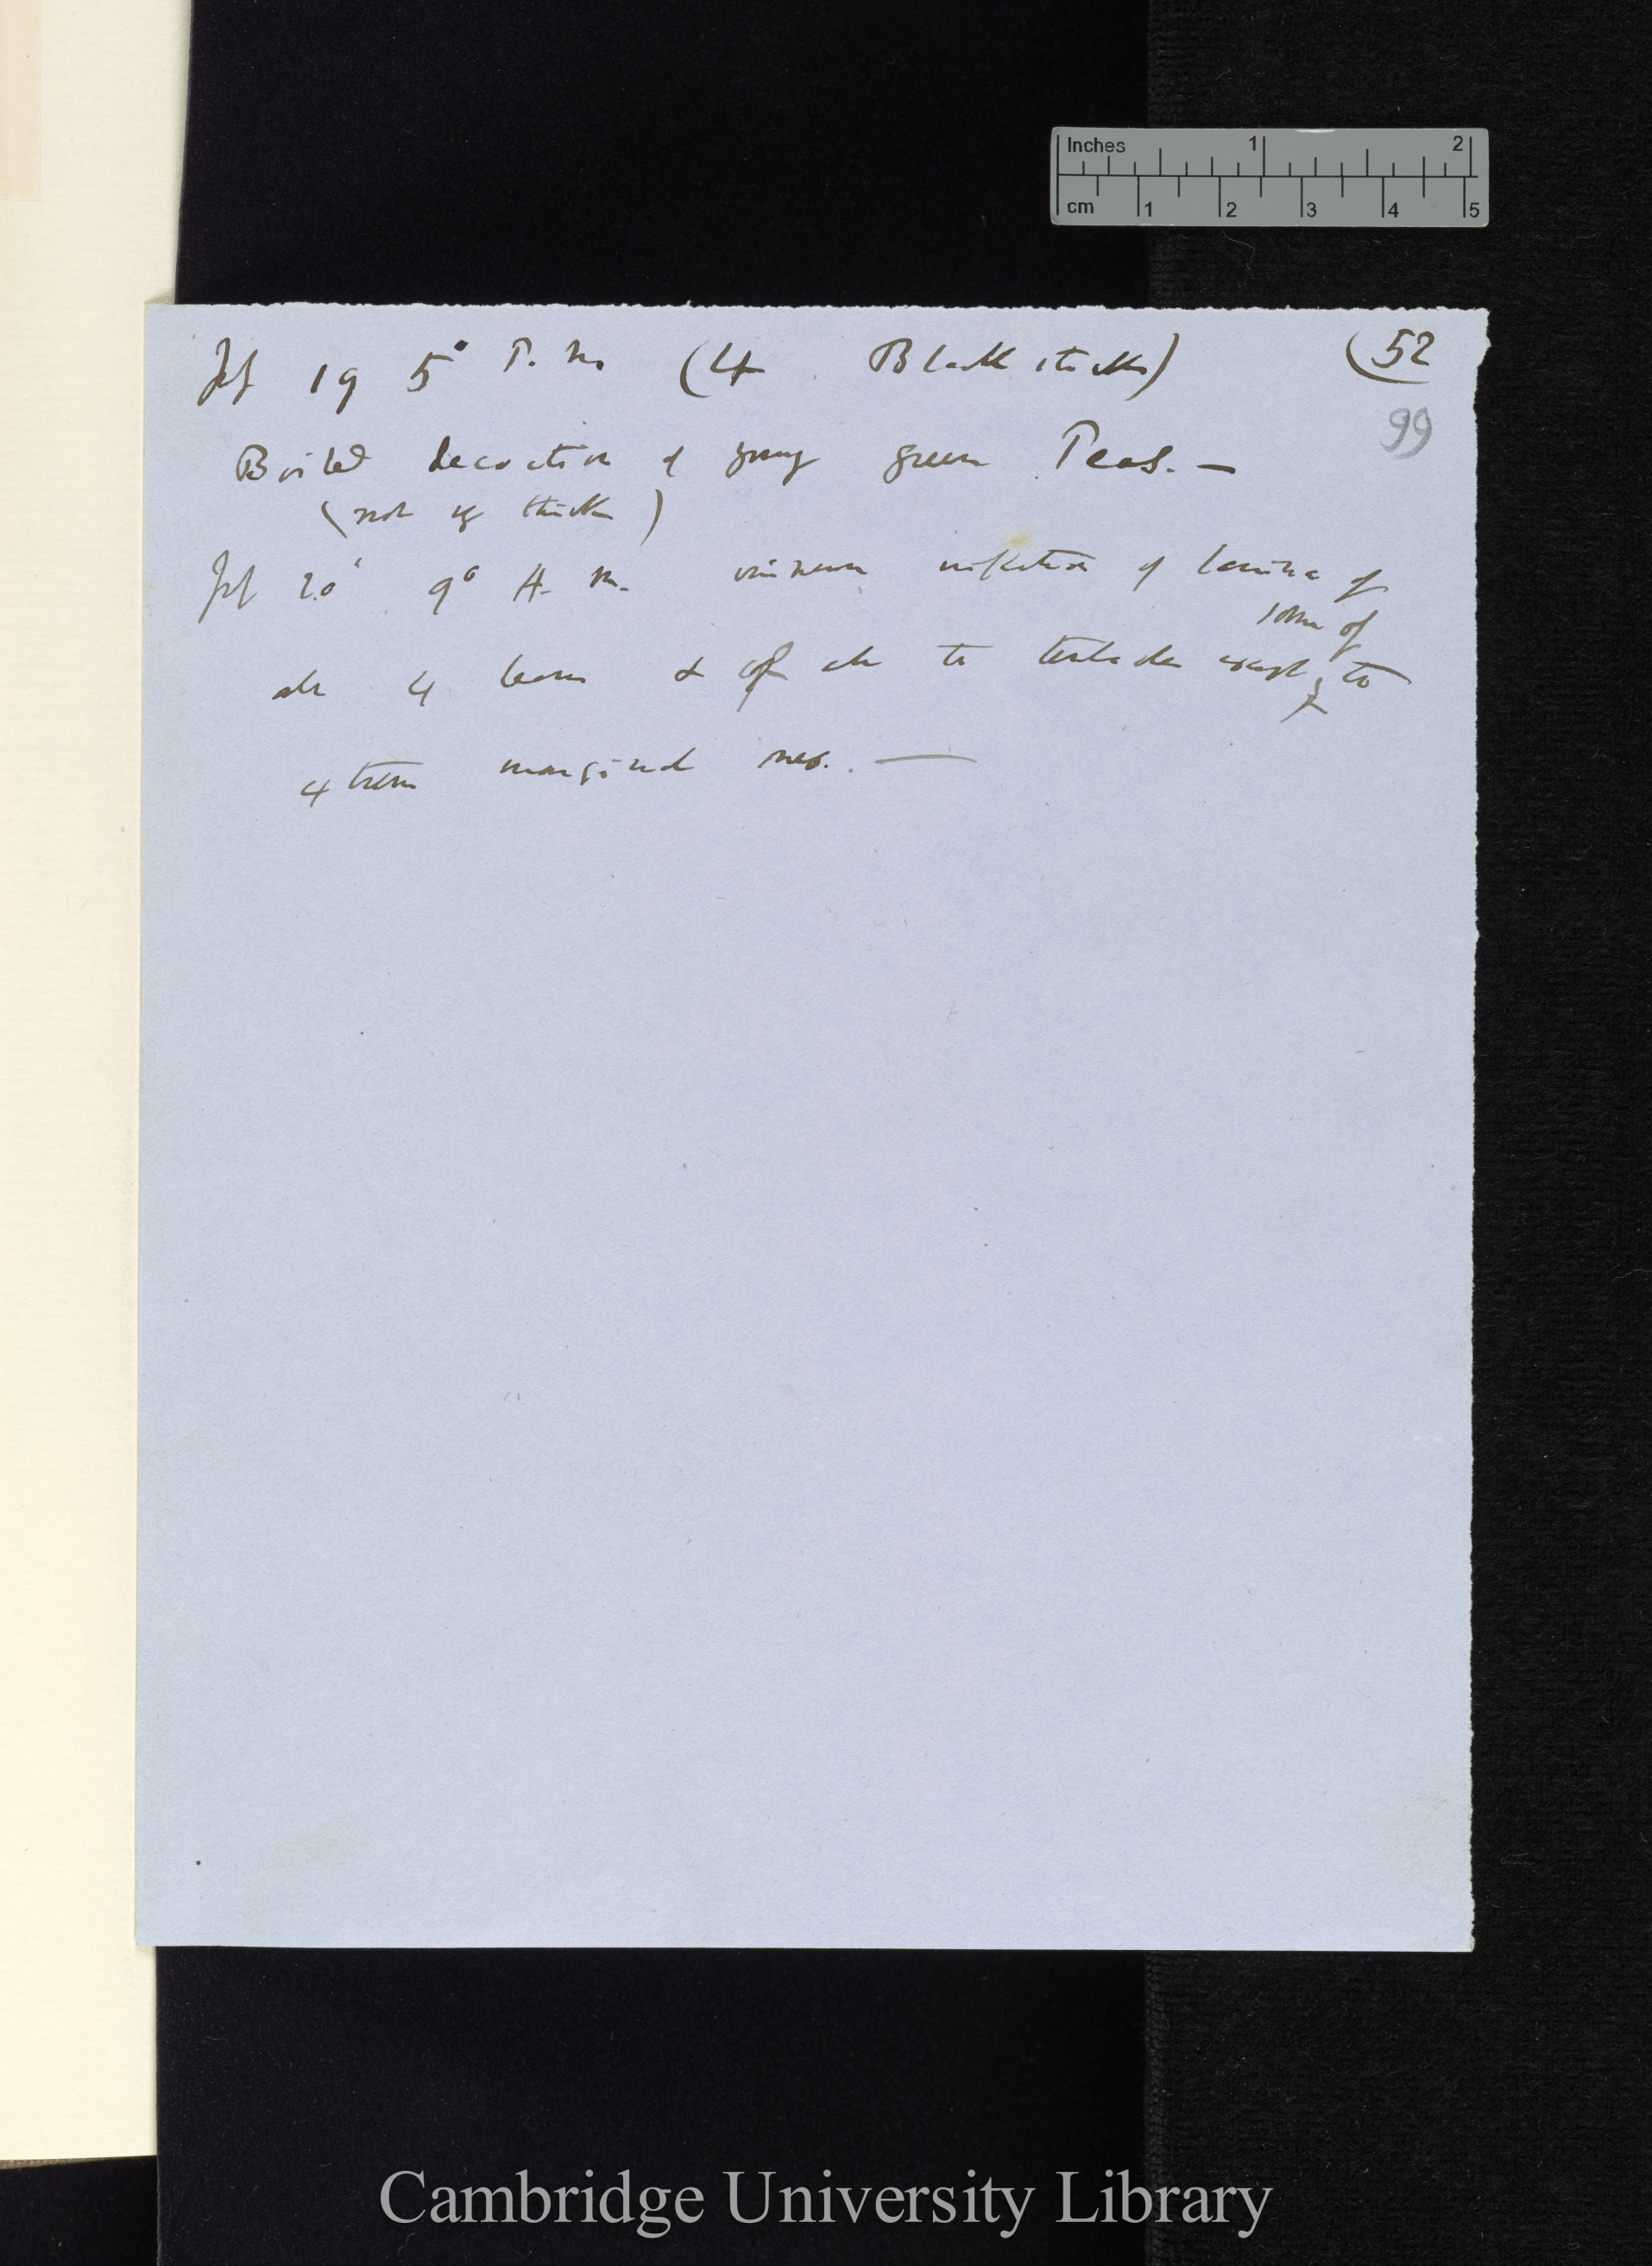 Inches 1 2
cm 1 2 3 4 5
July 19 5° P.M. (4 Black sticks) (52
99
Boiled decoction of young green Peas. —
(not thick)
July 20' 9° A.M. inflection of lamina of
all 4 leaves & of all the tentacles except some of the
extreme marginal ones. —
Cambridge University Library